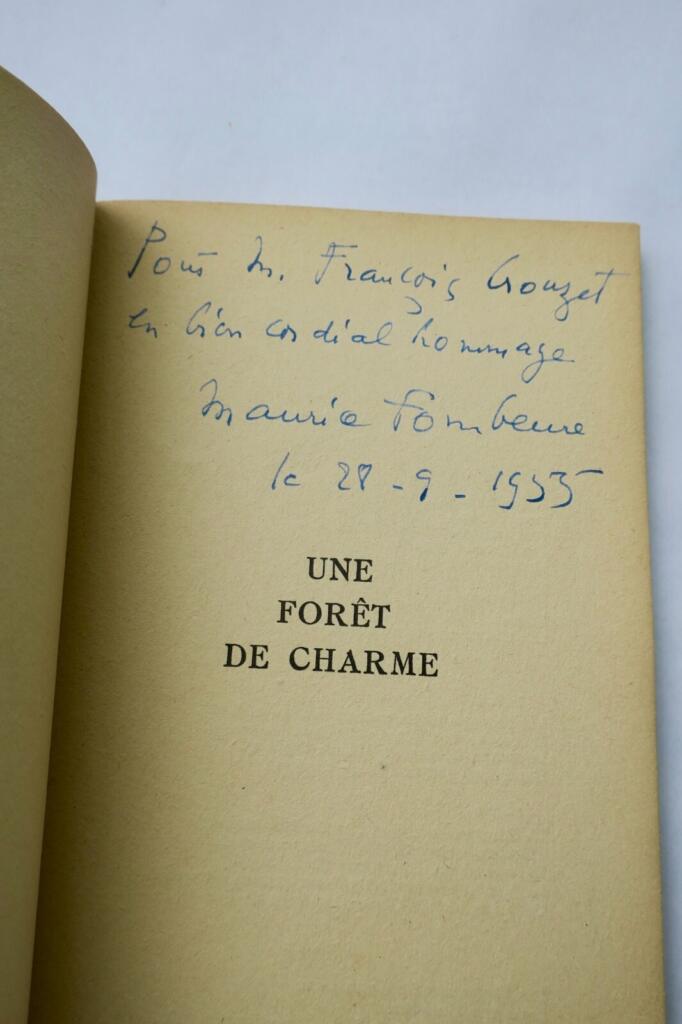 Pour M. François Crouzet
en bien cordial hommage
Maurice Fombeure
le 28-9-1955
UNE
FORÊT
DE CHARME